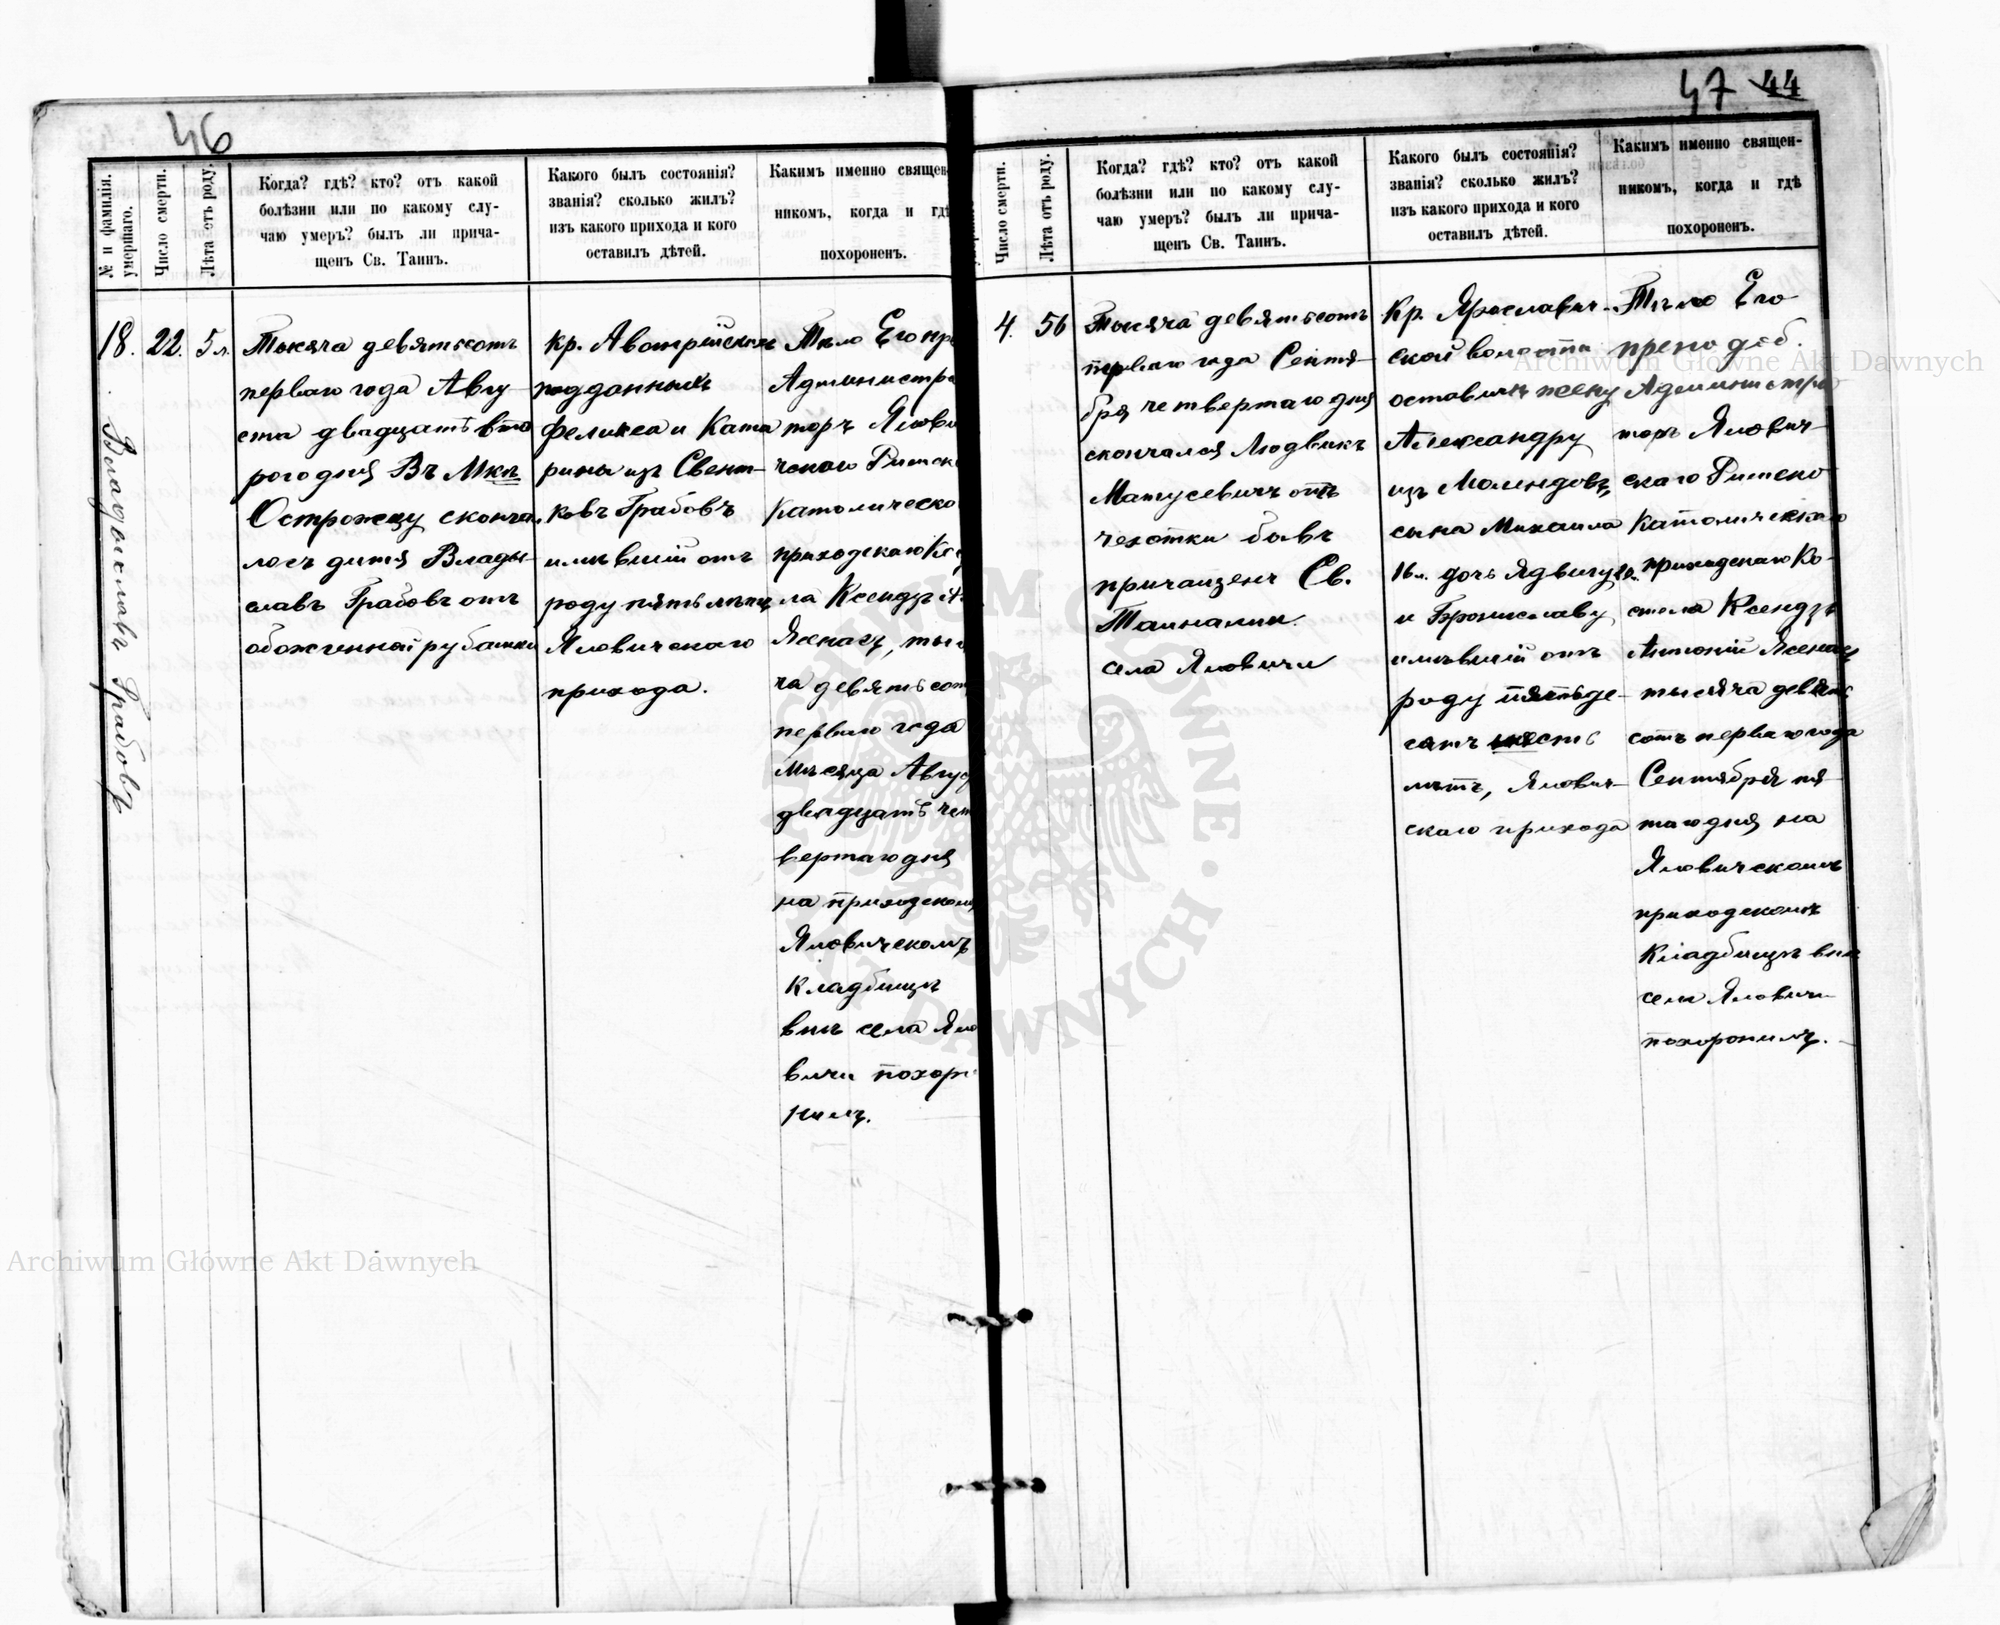 46
№ и фамилія умершаго.
Число смерти.
Лѣта отъ роду.
Когда? гдѣ? кто? отъ какой
болѣзни или по какому слу-
чаю умеръ? былъ ли прича-
щенъ Св. Таинъ.
Какого былъ состоянія?
званія? сколько жилъ?
изъ какого прихода и кого
оставилъ дѣтей.
Какимъ именно священ
никомъ, когда и гдѣ
похороненъ.
18.
Владыславъ Грабовъ
22.
5 л.
Тысяча девятьсотъ
перваго года Авгу-
ста двадцать вто
рого дня Въ Мкѣ
Острожцу сконча
лось дитя Влады-
славъ Грабовъ отъ
обожженной рубашки
кр. Австрійскихъ
подданныхъ
Феликса и Ката
рины изъ Свент-
ковъ Грабовъ
имѣвшій отъ
роду пять лѣтъ,
Яловичскаго
прихода.
Тѣло Его пр
Администра
торъ Ялови
чскаго Римск
Католическо
приходскаго Кос
ла Ксендзъ А
Ясенасъ, тыс
ча девятьсот
перваго года
Мѣсяца Авгус
двадцать чет
вертаго дня
на приходском
Яловичскомъ
Кладбищѣ
внѣ села Яло
вичи похоро
нилъ.
47 44
Число смерти.
Лѣта отъ роду.
Когда? гдѣ? кто? отъ какой
болѣзни или по какому слу-
чаю умеръ? былъ ли прича-
щенъ Св. Таинъ.
Какого былъ состоянія?
званія? сколько жилъ?
изъ какого прихода и кого
оставилъ дѣтей.
Какимъ именно священ-
никомъ, когда и гдѣ
похороненъ.
4.
56
Тысяча девятьсотъ
перваго года Сентя-
бря четвертаго дня
скончался Людвикъ
Матусевичъ отъ
чехотки бывъ
причащенъ Св.
Тайнами.
села Яловичи
Кр. Ярославич-
ской волости
оставилъ жену
Александру
изъ Молендовъ,
сына Михаила
16 л. дочь Ядвигу
и Брониславу
имѣвшій отъ
роду пятьде-
сятъ шесть
лѣтъ, Ялович-
скаго прихода
Тѣло Его
преподоб.
Администра
торъ Ялович-
скаго Римско
Католическаго
приходскаго Ко-
стела Ксендзъ
Антоній Ясенасъ
тысяча девять
сотъ перваго года
Сентября пя-
таго дня на
Яловичскомъ
приходскомъ
Кладбищѣ внѣ
села Яловичи
похоронилъ.
Archiwum Główne Akt Dawnych
Archiwum Główne Akt Dawnych
ARCHIWUM GŁÓWNE AKT DAWNYCH